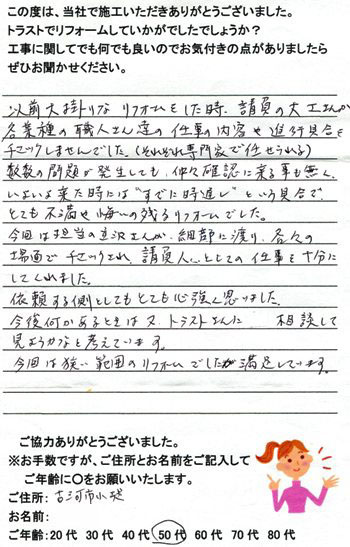 この度は、当社で施工いただきありがとうございました。
トラストでリフォームしていかがでしたでしょうか?
工事に関してでも何でも良いのでお気付きの点がありましたら
ぜひお聞かせください。
以前大掛りな リフォームをした時、請負の大工さんが
各業種の職人さん達の仕事の内容や進行具合を
チェックしませんでした。(それぞれ専門家で任せられる)
数数の問題が発生しても、仲々確認に来る事も無く、
いよいよ来た時には"すでに時遅し"という具合で、
とても不満や悔いの残るリフォームでした。
今回は担当の 沢さんが、細部に渡り、各々の
場面でチェックされ、請負人 としての仕事を十分に
してくれました。
依頼する側としてもとても心強く思いました。
今後何かあるときは又、トラストさんに、相談して
見ようかなと考えています。
今回は狭い範囲のリフォームでしたが満足しています。
ご協力ありがとうございました。
※お手数ですが、ご住所とお名前をご記入して
ご年齢に〇をお願いいたします。
ご住所: 古河市小堤
お名前:
ご年齢:20代 30代 40代 50代 60代 70代 80代